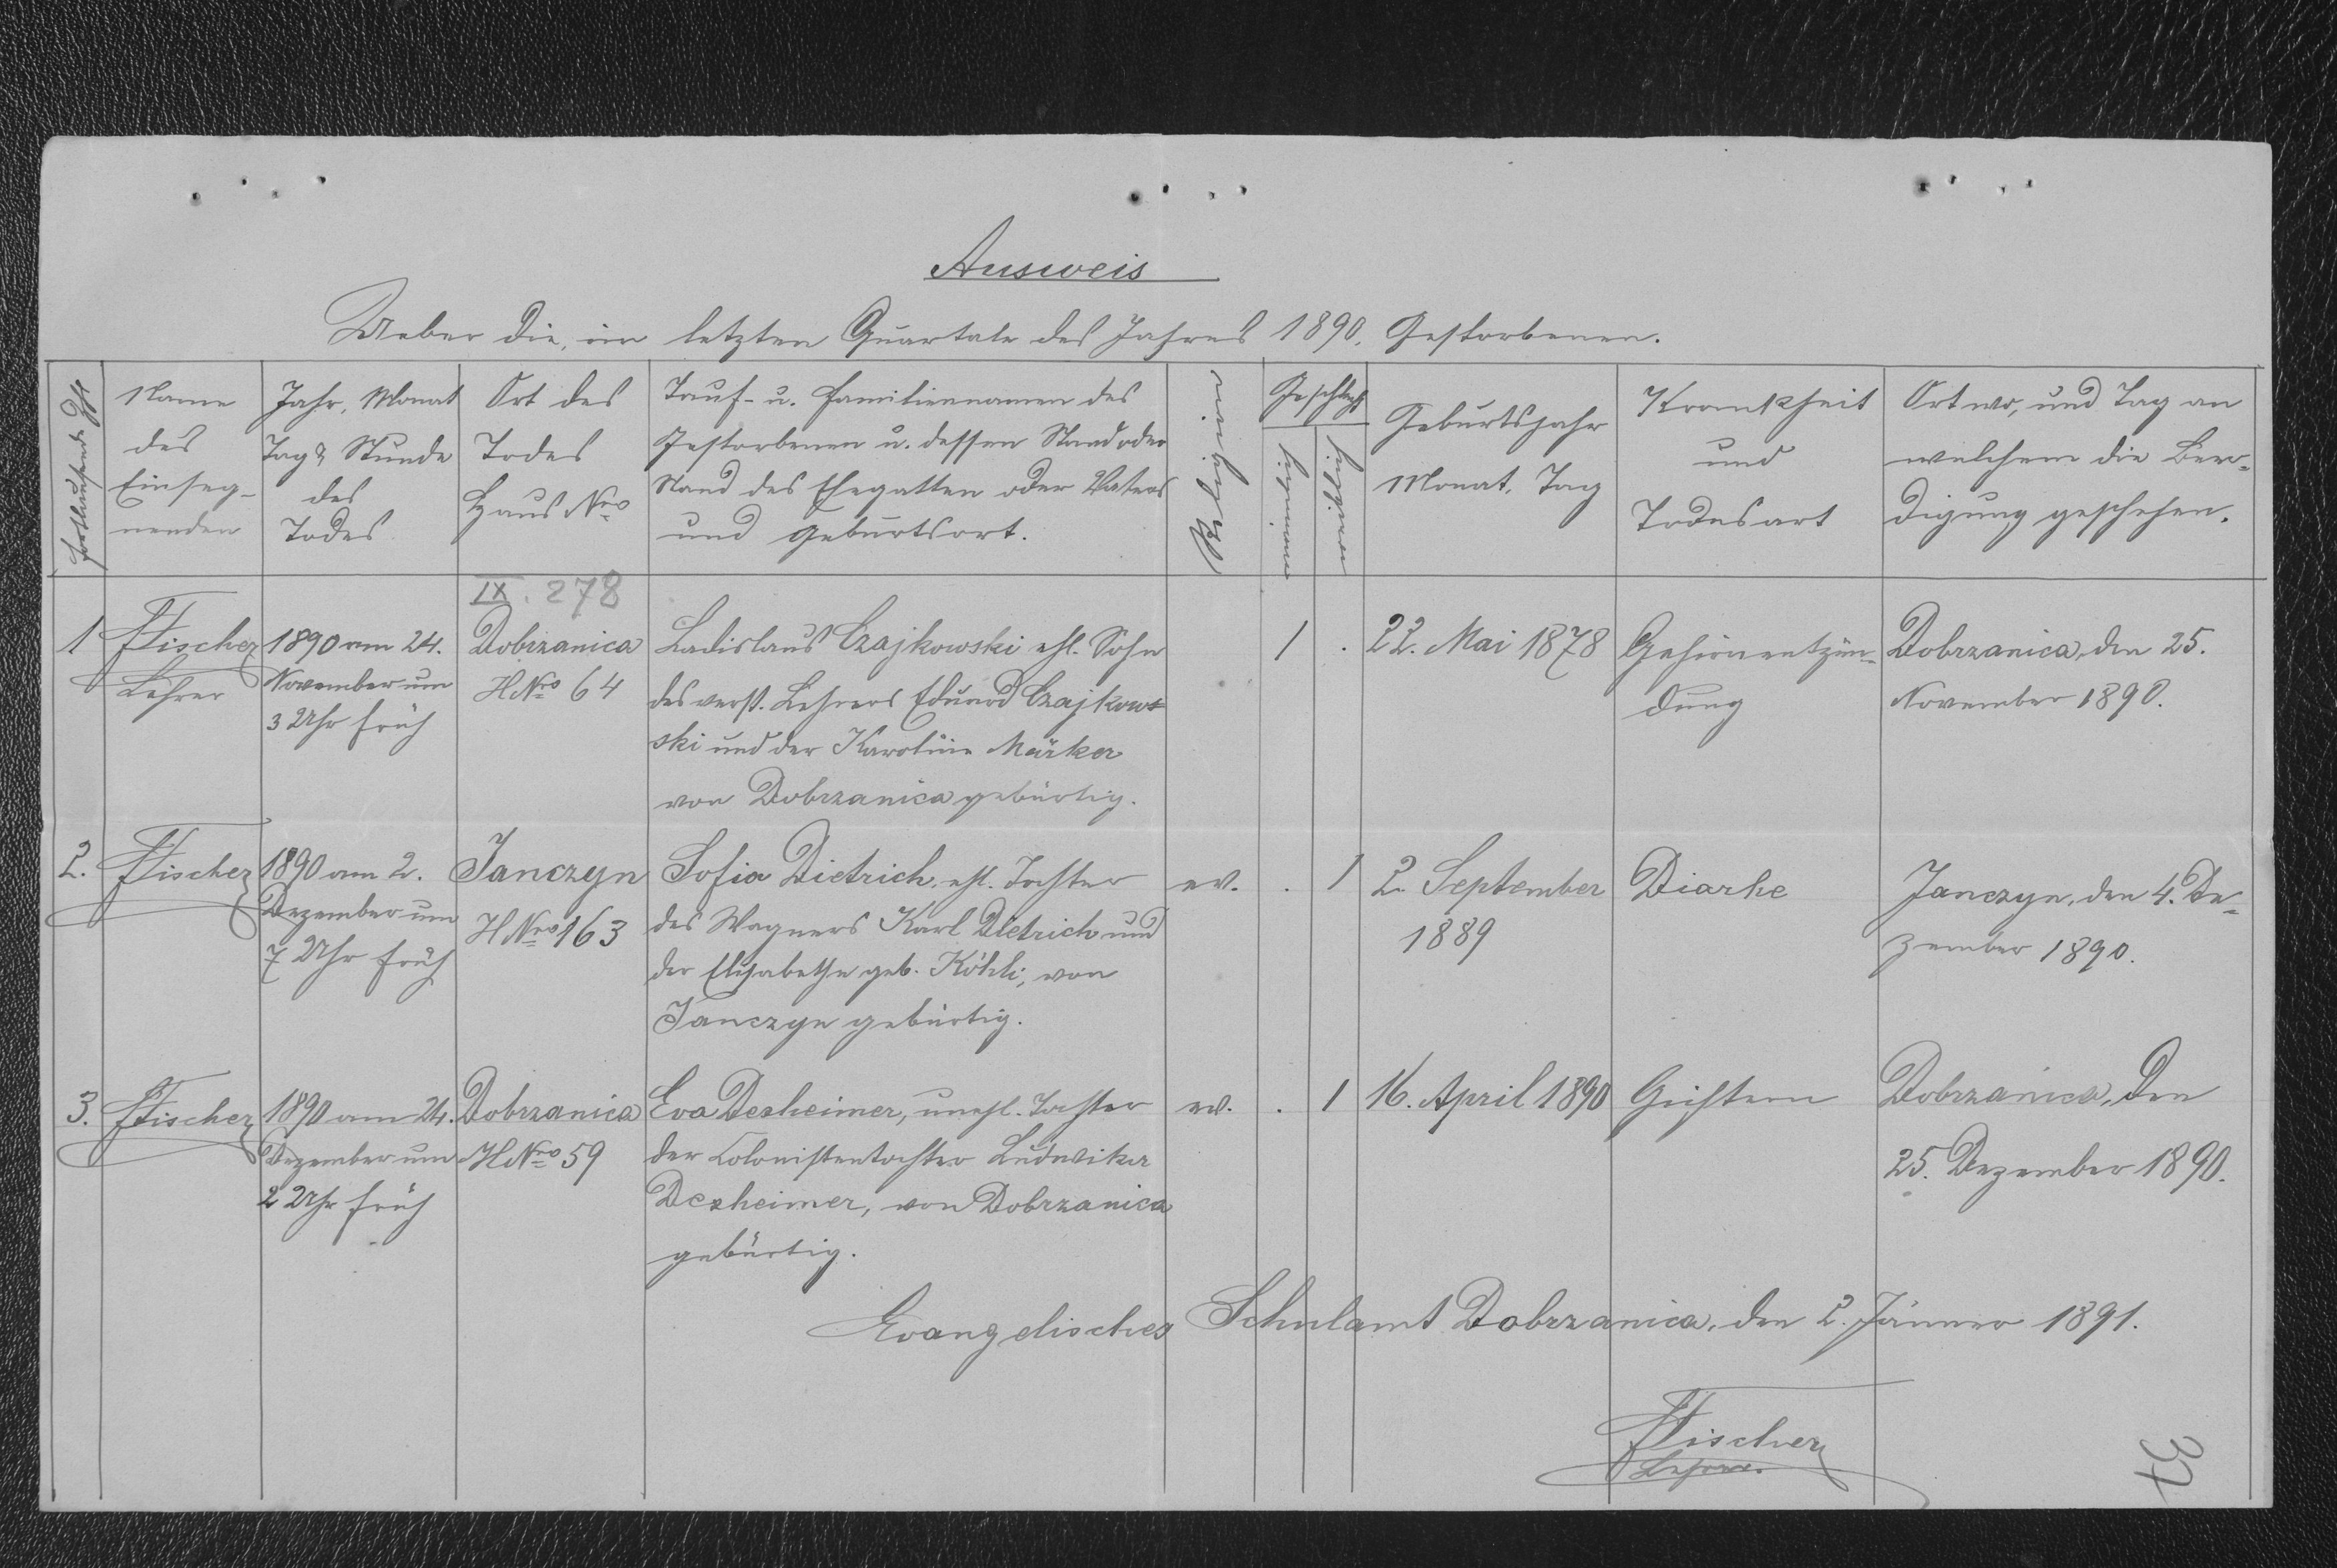 Ausweis
Ueber die, im letzten Quartale des Jahres 1890. Gestorbenen.
fortlaufende
Name
des
Einseg-
nenden
Jahr, Monat
Tag & Stunde
des
Todes
Ort des
Todes
Haus Nro
Tauf- u. Familiennamen des
Gestorbenen u. dessen Stand oder
Stand des Ehegatten oder Vaters
und Geburtsort.
Religion
Geschlecht
männlich
weiblich
Geburtsjahr
Monat, Tag
Krankheit
und
Todesart
Ort wo, und Tag an
welchem die Beer-
digung geschehen.
IX. 278
1
Fischer
Lehrer
1890 am 24.
November um
3 Uhr früh
Dobrzanica
HNro 64
Ladislaus Czajkowski ehl. Sohn
des verst. Lehrers Eduard Czajkow-
ski und der Karoline Märker
von Dobrzanica gebürtig.
1 .
22. Mai 1878
Gehirnentzün-
dung
Dobrzanica, den 25.
November 1890.
2.
Fischer
1890 am 2.
Dezember um
7 Uhr früh
Janczyn
HNro 163
Sofia Dietrich, ehl. Tochter
des Wagners Karl Dietrich und
der Elisabethe geb. Köhli, von
Janczyn gebürtig.
ev.
. 1
2. September
1889
Diarhe
Janczyn, den 4. De-
zember 1890.
3.
Fischer
1890 am 24.
Dezember um
2 Uhr früh
Dobrzanica
HNro 59
Eva Desheimer, unehl. Tochter
der Colonistentochter Ludwika
Desheimer, von Dobrzanica
gebürtig.
ev.
. 1
16. April 1890
Dobrzanica, den
25. Dezember 1890.
Evangelisches Schulamt Dobrzanica, den 2. Jänner 1891.
Fischer
Lehrer.
37